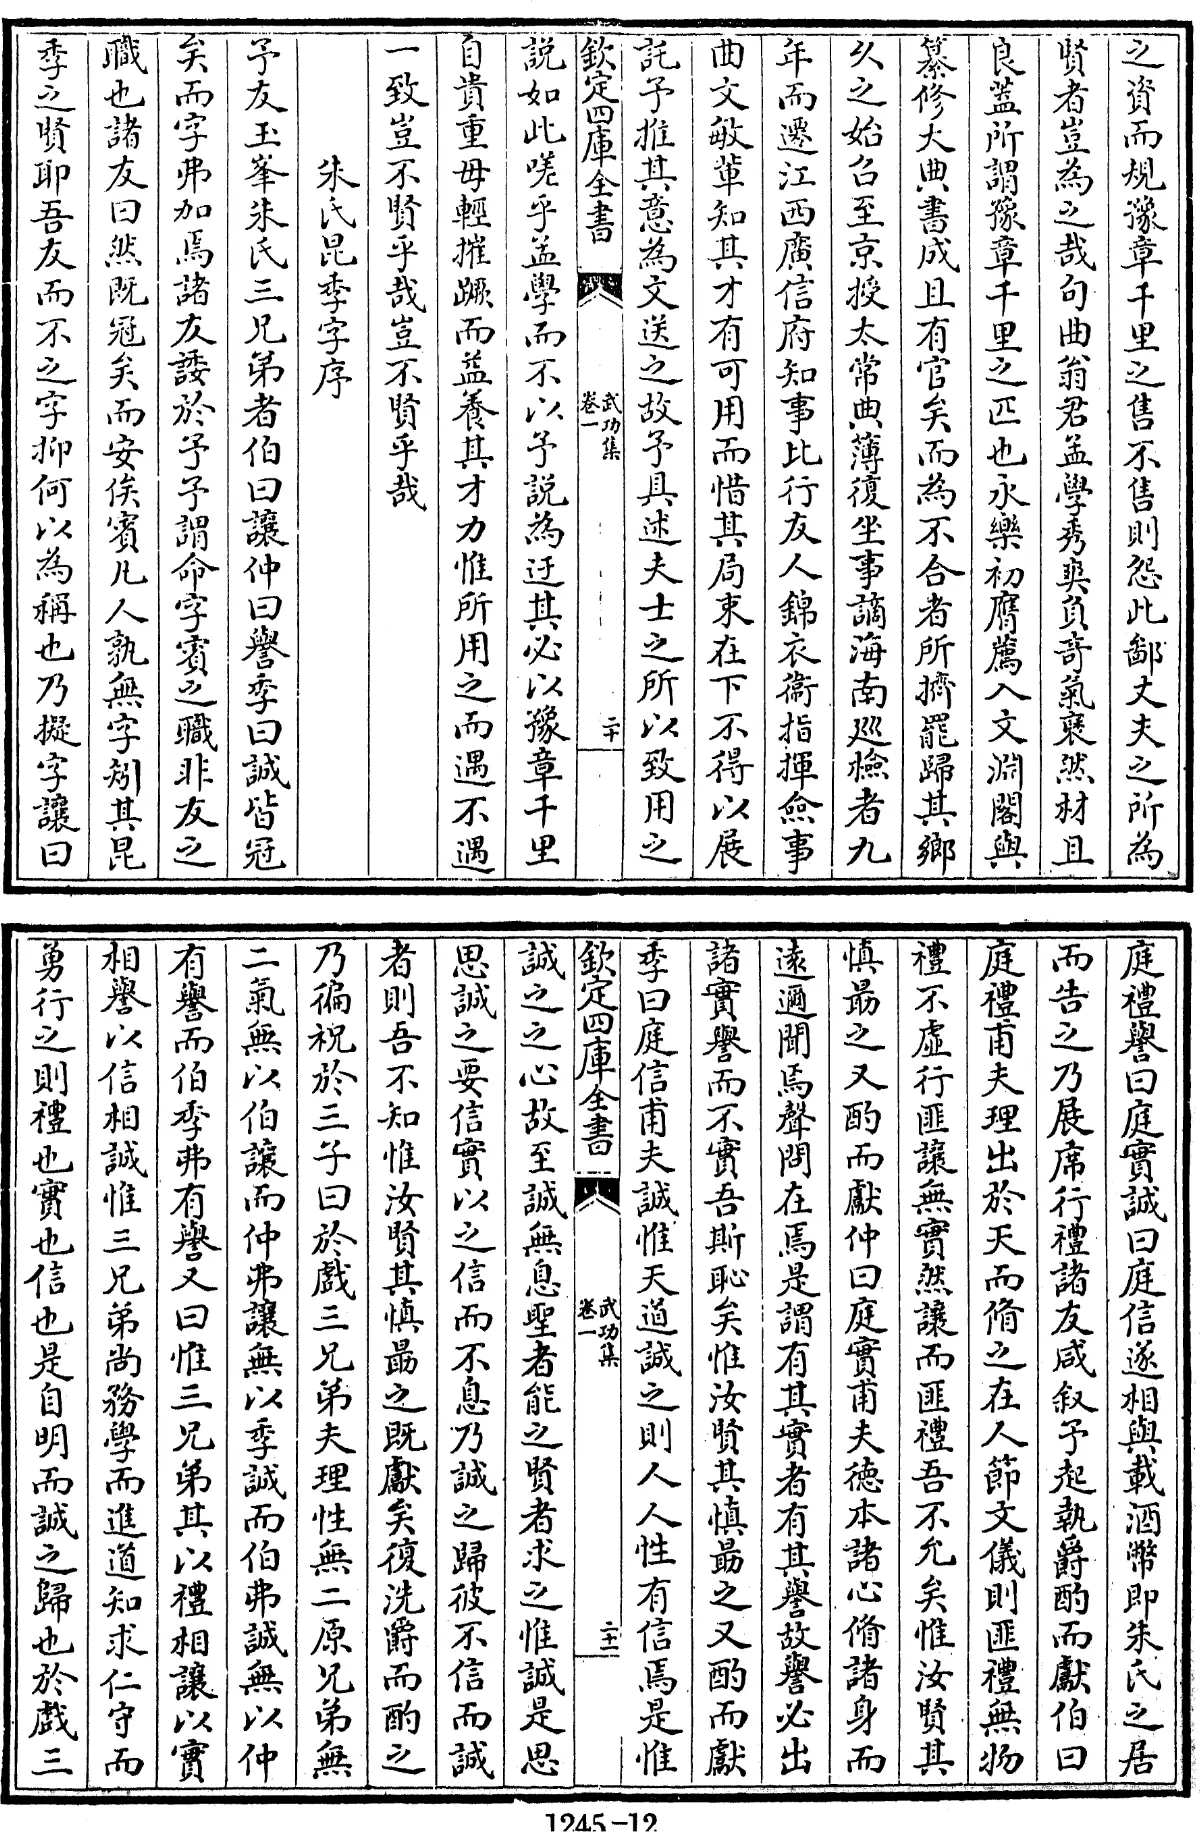 之資而規豫章千里之售不售則怨此鄙丈夫之所為
賢者豈為之哉句曲翁君孟學秀爽負奇氣褎然材且
良蓋所謂豫章千里之匹也永樂初膺薦入文淵閣與
纂修大典書成且有官矣而為不合者所擠罷歸其鄉
久之始召至京授太常典簿復坐事謫海南巡檢者九
年而遷江西廣信府知事比行友人錦衣衞指揮僉事
曲文敏輩知其才有可用而惜其局束在下不得以展
託予推其意為文送之故予具述夫士之所以致用之
欽定四庫全書
武功集
卷一
二十
説如此嗟乎孟學而不以予説為迂其必以豫章千里
自貴重毋輕摧蹶而益養其才力惟所用之而遇不遇
一致豈不賢乎哉豈不賢乎哉
朱氏昆季字序
予友玉峯朱氏三兄弟者伯曰讓仲曰譽季曰誠皆冠
矣而字弗加焉諸友諉於予予謂命字賓之職非友之
職也諸友曰然既冠矣而安俟賓凡人孰無字矧其昆
季之賢耶吾友而不之字抑何以為稱也乃擬字讓曰
庭禮譽曰庭實誠曰庭信遂相與載酒幣即朱氏之居
而告之乃展席行禮諸友咸叙予起執爵酌而獻伯曰
庭禮甫夫理出於天而脩之在人節文儀則匪禮無物
禮不虛行匪讓無實然讓而匪禮吾不允矣惟汝賢其
慎朂之又酌而獻仲曰庭實甫夫德本諸心脩諸身而
遠邇聞焉聲問在焉是謂有其實者有其譽故譽必出
諸實譽而不實吾斯恥矣惟汝賢其慎朂之又酌而獻
季曰庭信甫夫誠惟天道誠之則人人性有信焉是惟
欽定四庫全書
武功集
卷一
二十一
誠之之心故至誠無息聖者能之賢者求之惟誠是思
思誠之要信實以之信而不息乃誠之歸彼不信而誠
者則吾不知惟汝賢其慎朂之既獻矣復洗爵而酌之
乃徧祝於三子曰於戲三兄弟夫理性無二原兄弟無
二氣無以伯讓而仲弗讓無以季誠而伯弗誠無以仲
有譽而伯季弗有譽又曰惟三兄弟其以禮相讓以實
相譽以信相誠惟三兄弟尚務學而進道知求仁守而
勇行之則禮也實也信也是自明而誠之歸也於戲三
1245-12